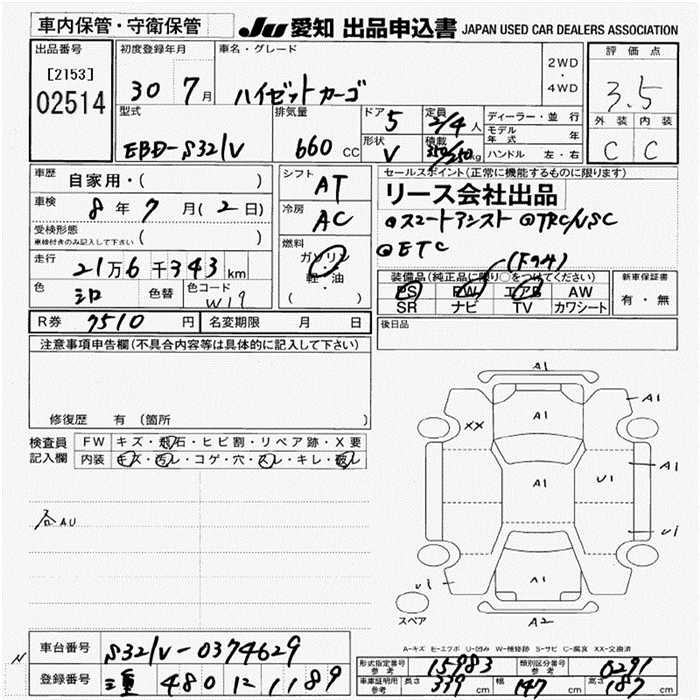 車内保管・守衛保管
JU 愛知 出品申込書 JAPAN USED CAR DEALERS ASSOCIATION
出品番号
[2153]
02514
初度登録年月
30 7月
車名・グレード
ハイゼットカーゴ
2WD
・
4WD
評価点
3.5
外装 内装
C C
型式
EBD-S321V
排気量
660 CC
ドア 5
形状 V
定員 2/4 人
積載 350/250 kg
ディーラー・並行
モデル年式 年
ハンドル 左・右
車歴 自家用・( )
車検 8年 7月(2日)
受検形態
車検付きのみ記入して下さい ( )
走行
21万6千343km
色 シロ 色替 色コード W19
シフト AT
冷房 AC
燃料
ガソリン
軽・油
( )
セールスポイント(正常に機能するものに限ります)
リース会社出品
◎スマートアシスト ◎TRC/VSC
◎ETC
装備品(純正品に限り〇をつけてください)
PS PW エアB AW
SR ナビ TV カワシート
新車保証書
有・無
R券 7510 円 名変期限 月 日
後日品
注意事項申告欄(不具合内容等は具体的に記入して下さい)
修復歴 有 (箇所 )
検査員記入欄
FW キズ・飛石・ヒビ割・リペア跡・X要
内装 キズ・汚レ・コゲ・穴・スレ・キレ・破レ
A1
A1
A1
XX
A1
A1
U1
U1
U1
A1
A2
スペア
A-キズ E-エクボ U-凹み W-補修跡 S-サビ C-腐食 XX-交換済
車台番号 S321V-0374629
登録番号 三重 480 に 1189
形式指定番号 参考 15983 類別区分番号 参考 0291
車庫証明用 参考 長さ 339 cm 幅 147 cm 高さ 187 cm